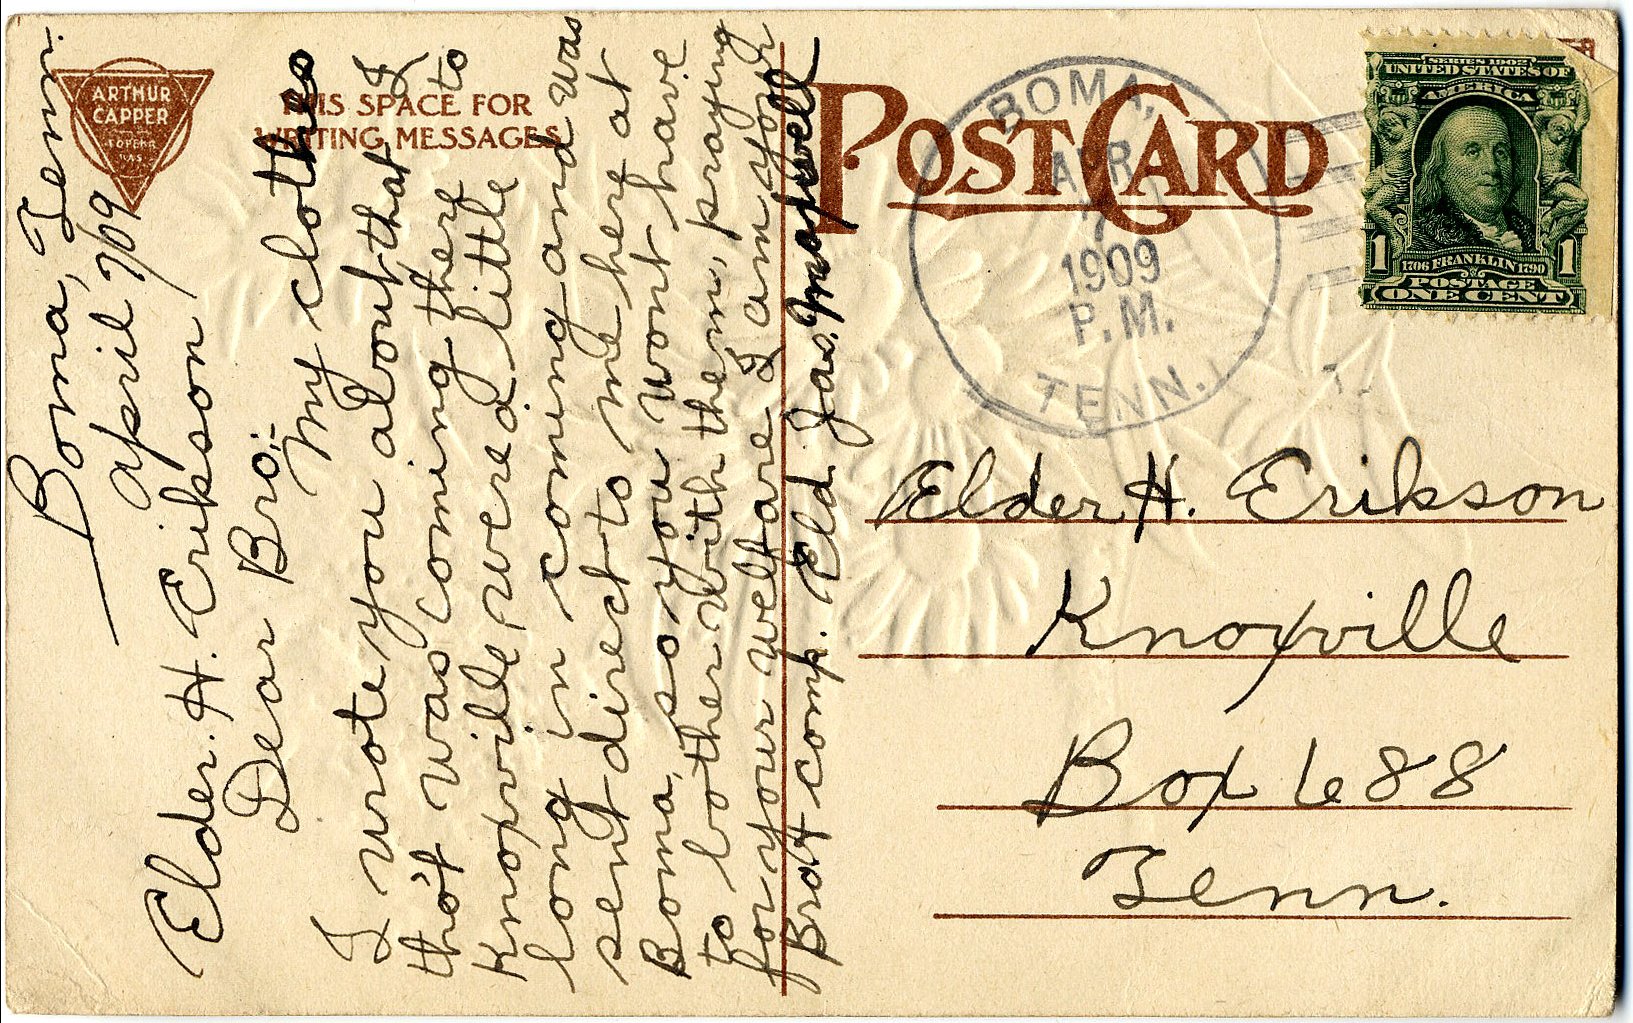 ARTHUR
CAPPER
TOPEKA
KAS
THIS SPACE FOR
WRITING MESSAGES
Boma, Tenn.
April 7/09
Elder. H. Erikson
Dear Bro:-
My clothes
I wrote you about that I
tho't was coming there to
Knoxville were a little
long in coming and was
sent direct to me here at
Boma, so you wont have
to bother with them, praying
for your welfare I am your
Brot comp. Eld. Jas. Maxwell
POST CARD
BOMA,
APR
7
1909
P.M.
TENN.
SERIES 1902
UNITED STATES OF
AMERICA
1 1706 FRANKLIN 1790 1
POSTAGE
ONE CENT
Elder H. Erikson
Knoxville
Box 688
Tenn.